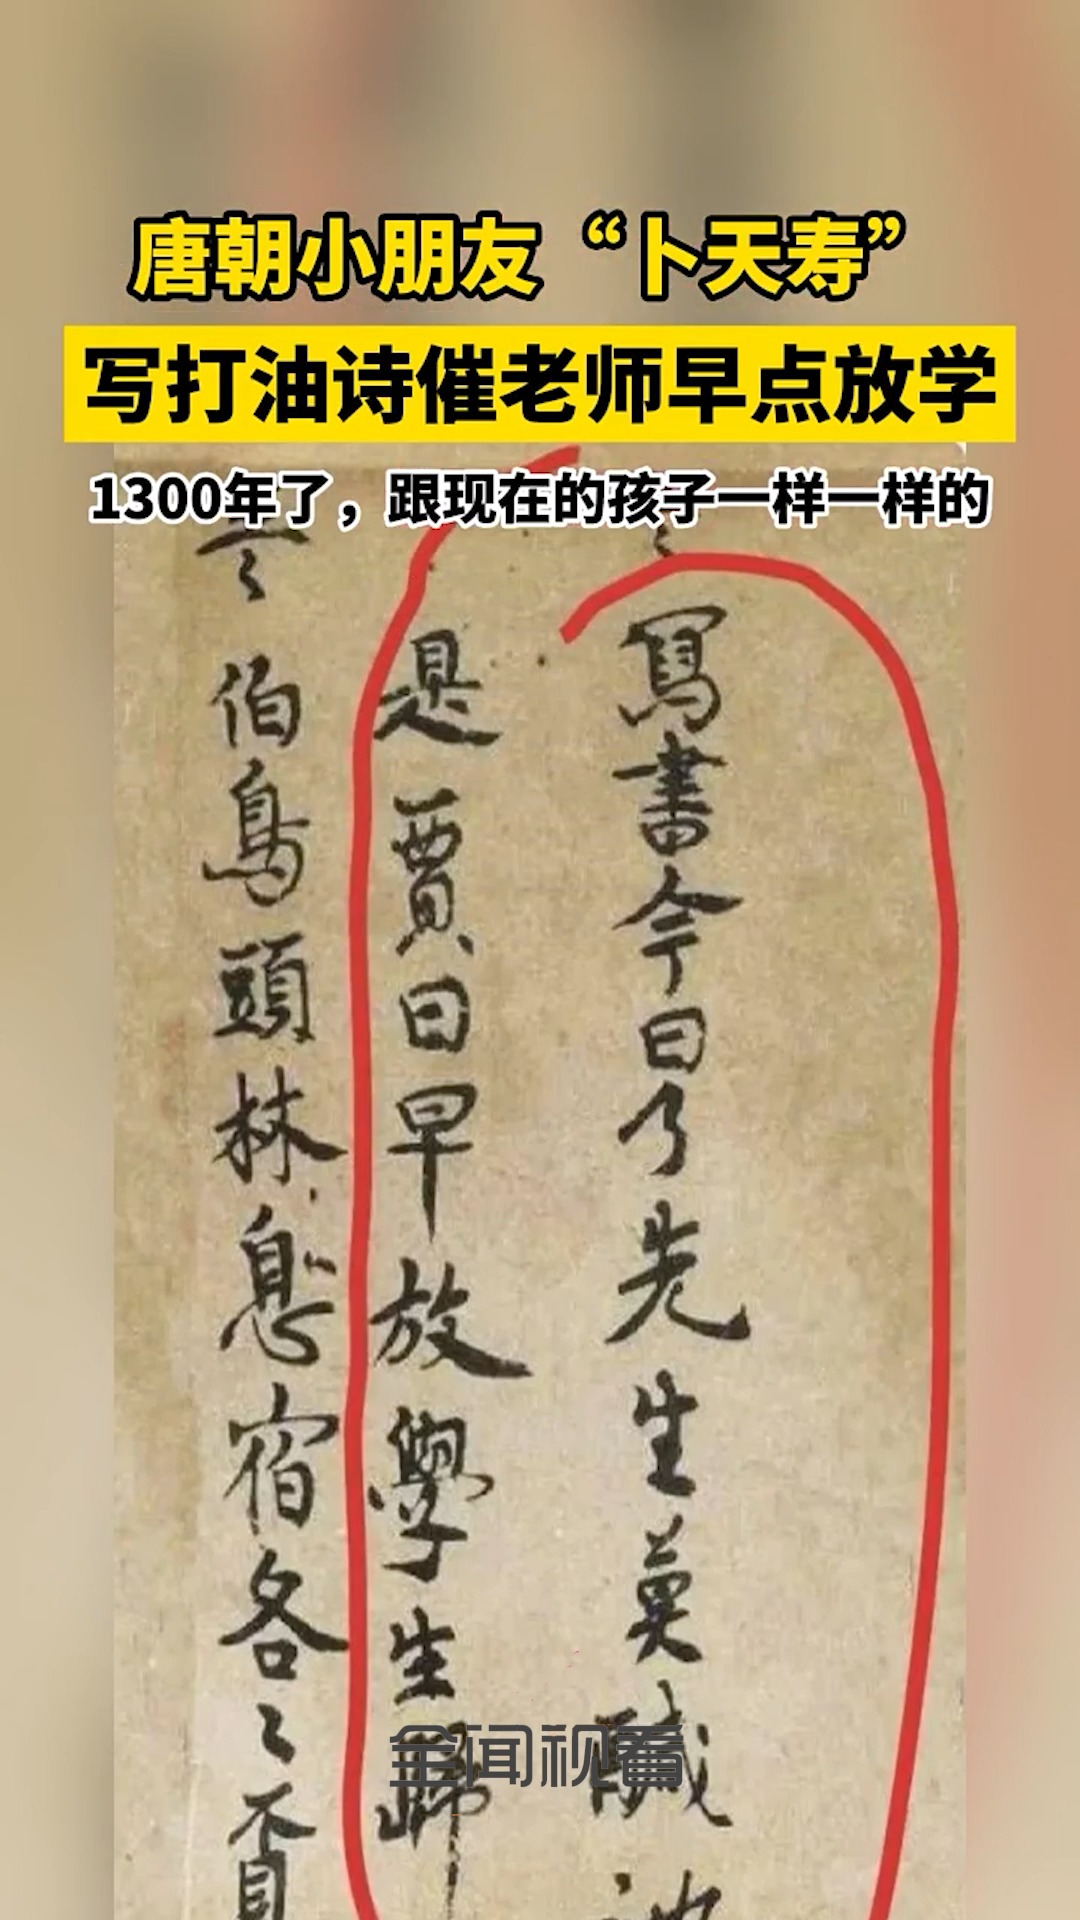 唐朝小朋友“卜天寿”
写打油诗催老师早点放学
1300年了，跟现在的孩子一样一样的
寫書今日了先生莫醎池
是賈日早放學生歸
伯鳥頭林息宿各〻
全闻视看